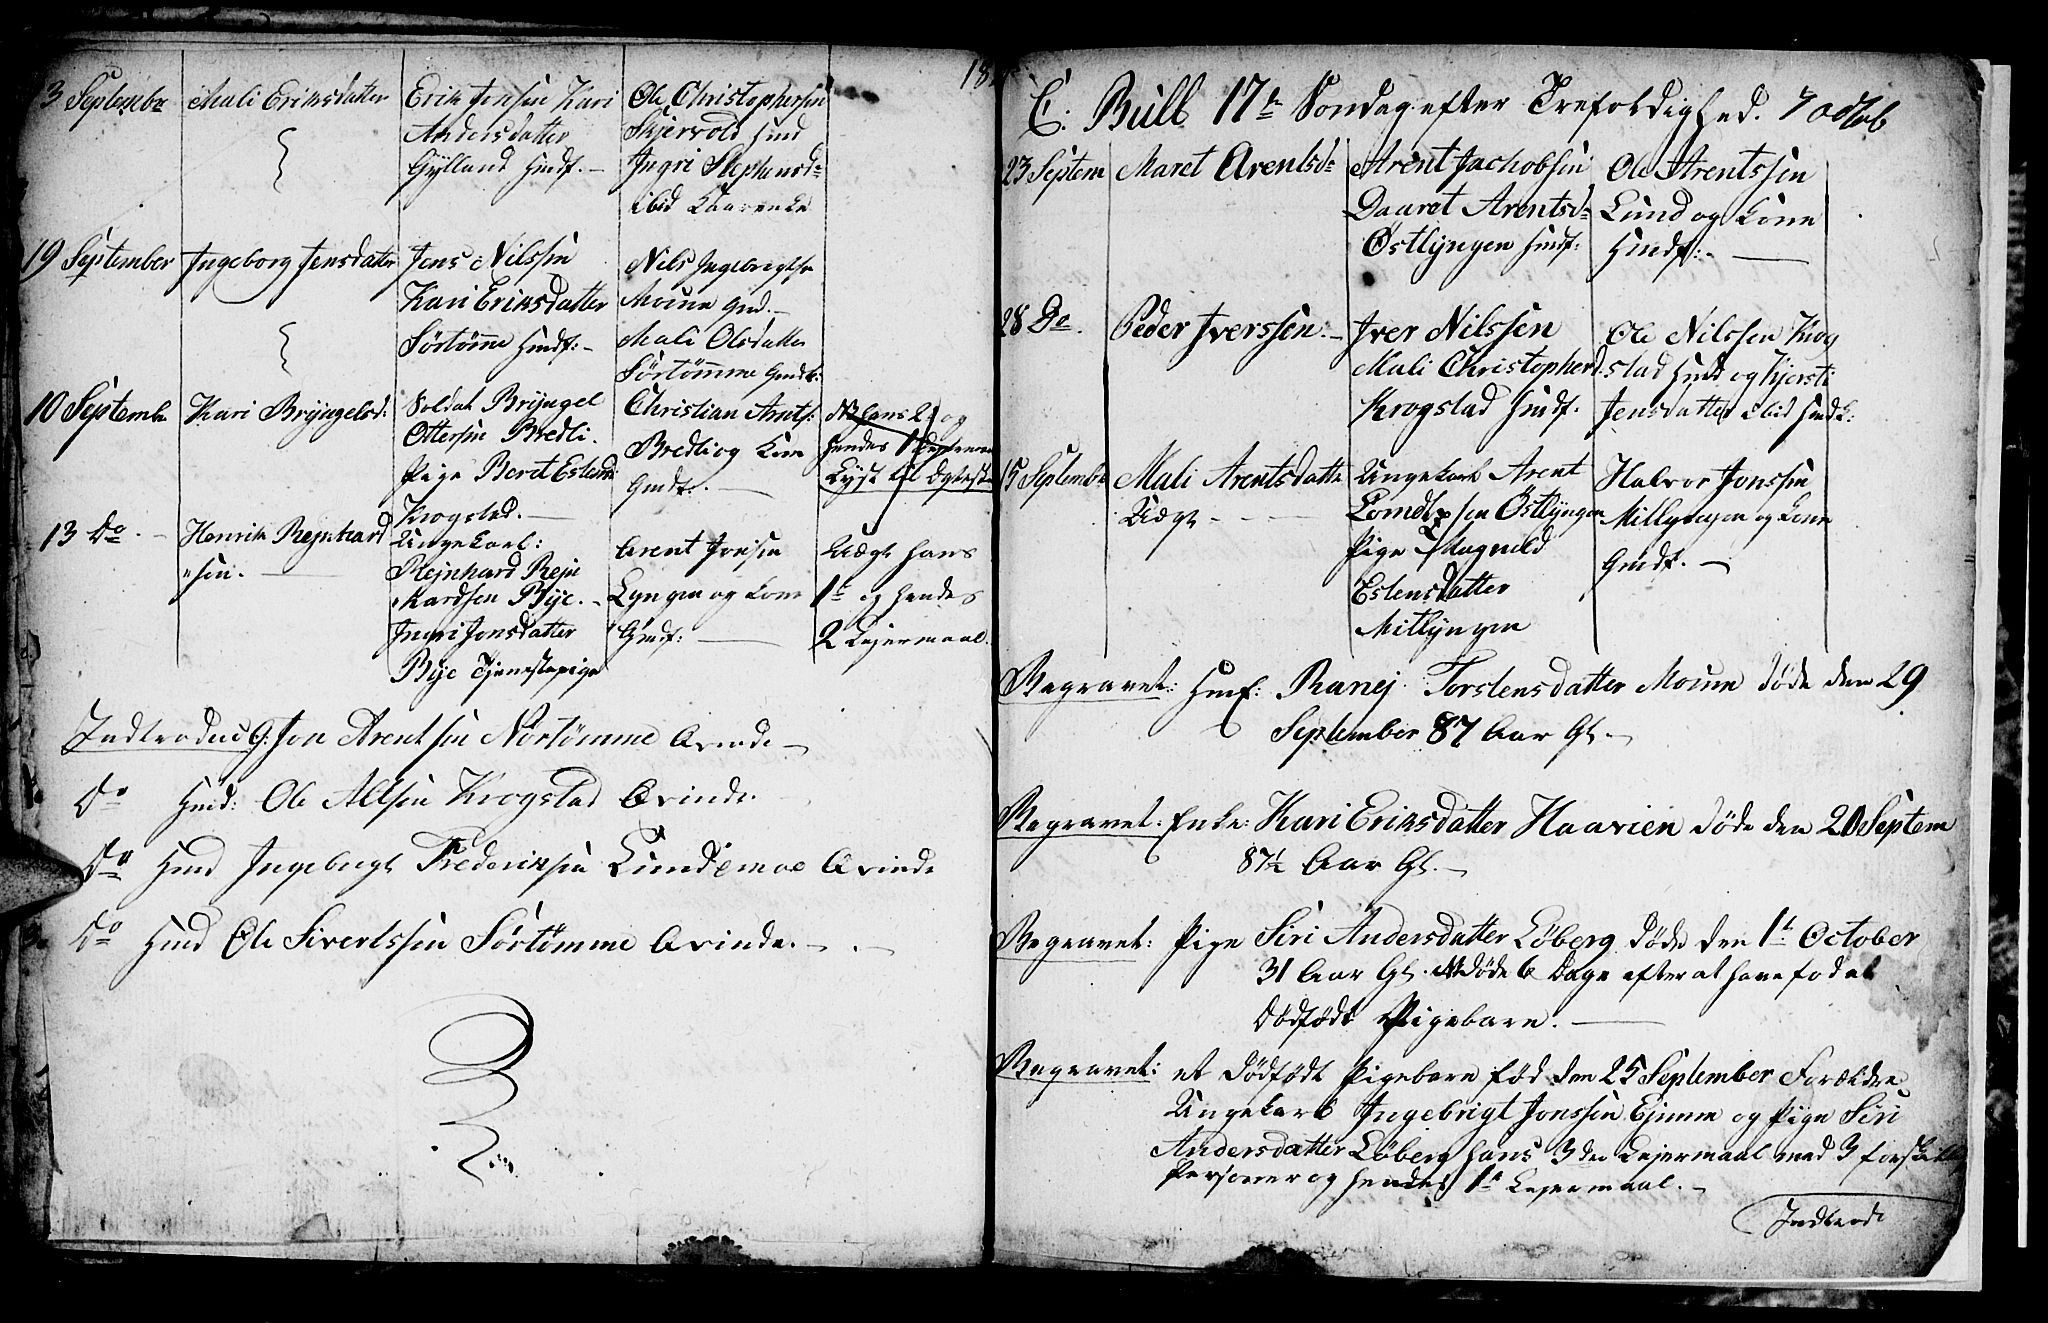 3 Septembr
Mali Eriksdatter
Erik Jonsen Kari
Andersdatter
Gylland Hmdf. —
Ole Christophersen
Skjervold Hmd
Ingri Stephensd:
ibid
19 September
Ingeborg Jensdatter
Jens Nilssen
Kari Eriksdatter
Sørtømme Hmdf: —
Nils Ingebregts:
Moum Gmd. —
Mali Olsdatter
Sørtømme Gmdk:
10 Septembr
Kari Bryngelsd:
Soldat Bryngel
Ottersen Bredli.
Pige Beret Eslend
Krogstad. —
Christian Arnts:
Bredli og Kone
Gmdf: —
NB hans 2 og
hendes 1
Lyst til
13 Do —
Henrik Rejnhard
sen. —
Ungekarl:
Rejnhard Rejn
hardsen Bye. —
Ingri Jonsdatter
Bye Tjenestepige
Arent Jonsen
Lyngen og Kone
Gmdf: —
Uægte hans
1te og hendes
2 Lejermaal.
Indtroduc G: Jon Arentsen Nørtømme Qvinde —
Do Hmd: Ole Allsen Krogstad Qvinde.
Do Hmd Ingebregt Frederiksen Lundemoe Qvinde
Do Hmd Ole Sivertssen Sørtømme Qvinde. —
18
C: Bull 17de Søndag efter Trefoldighed. 7 October
23 Septem
Maret Arentsd:
Arent Jachobsen
Daaret Arentsd:
Østlyngen Hmdf:
Ole Arentssen
Lund og Kone
Hmdf: —
28 Do.
Peder Iverssen: —
Iver Nilssen
Mali Christopherd:
Krogstad Hmdf.
Ole Nilssen Krog
stad Hmd og Kjersti
Jensdatter ibid Hmdk:
15 Septembr
Mali Arentsdatter
Uægt — —
Ungekarl Arent
Østlyngen
Pige Magnild
Estensdatter
Mitlyngen
Halvor Jonssen
Millyngen og Kone
Gmdf. —
Begravet: Hmk: Ranej Torstensdatter Moum døde den 29
September 87 Aar Gl. —
Begravet. Enke: Kari Eriksdatter Haavien døde den 20 Septem
87½ Aar Gl. —
Begravet: Pige Siri Andersdatter Løberg døde den 1te October
31 Aar Gl. døde 6 Dage efter at have fød et
dødfødt Pigebarn. —
Begravet: et dødfødt Pigebarn fød den 25 September Forældre
Ungekarl Ingebrigt Jonssen Ejmme og Pige Siri
Andersdatter Løberg hans 3de Lejermaal med 3 forskjell
Personer og hendes 1te Lejermaal. —
Indtrod: